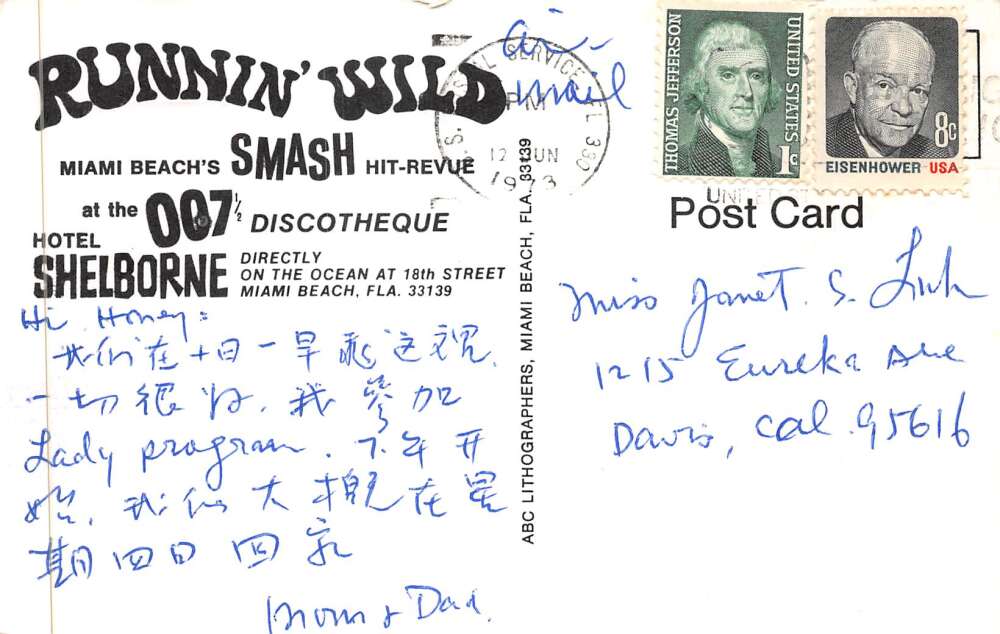 RUNNIN' WILD
MIAMI BEACH'S SMASH HIT-REVUE
at the 007½ DISCOTHEQUE
HOTEL
SHELBORNE
DIRECTLY
ON THE OCEAN AT 18th STREET
MIAMI BEACH, FLA. 33139
Hi Honey:
我们在十日一早
一切很好.我參加
Lady program. 下午开
始.我们大概在星
期四日回家
Mom & Dad.
ABC LITHOGRAPHERS, MIAMI BEACH, FLA. 33139
air
mail
SERVICE
PM
12 JUN
1973
THOMAS JEFFERSON
UNITED STATES
1c
8c
EISENHOWER USA
Post Card
Miss Janet. S.
1215 Eureka Ave
Davis, Cal. 95616